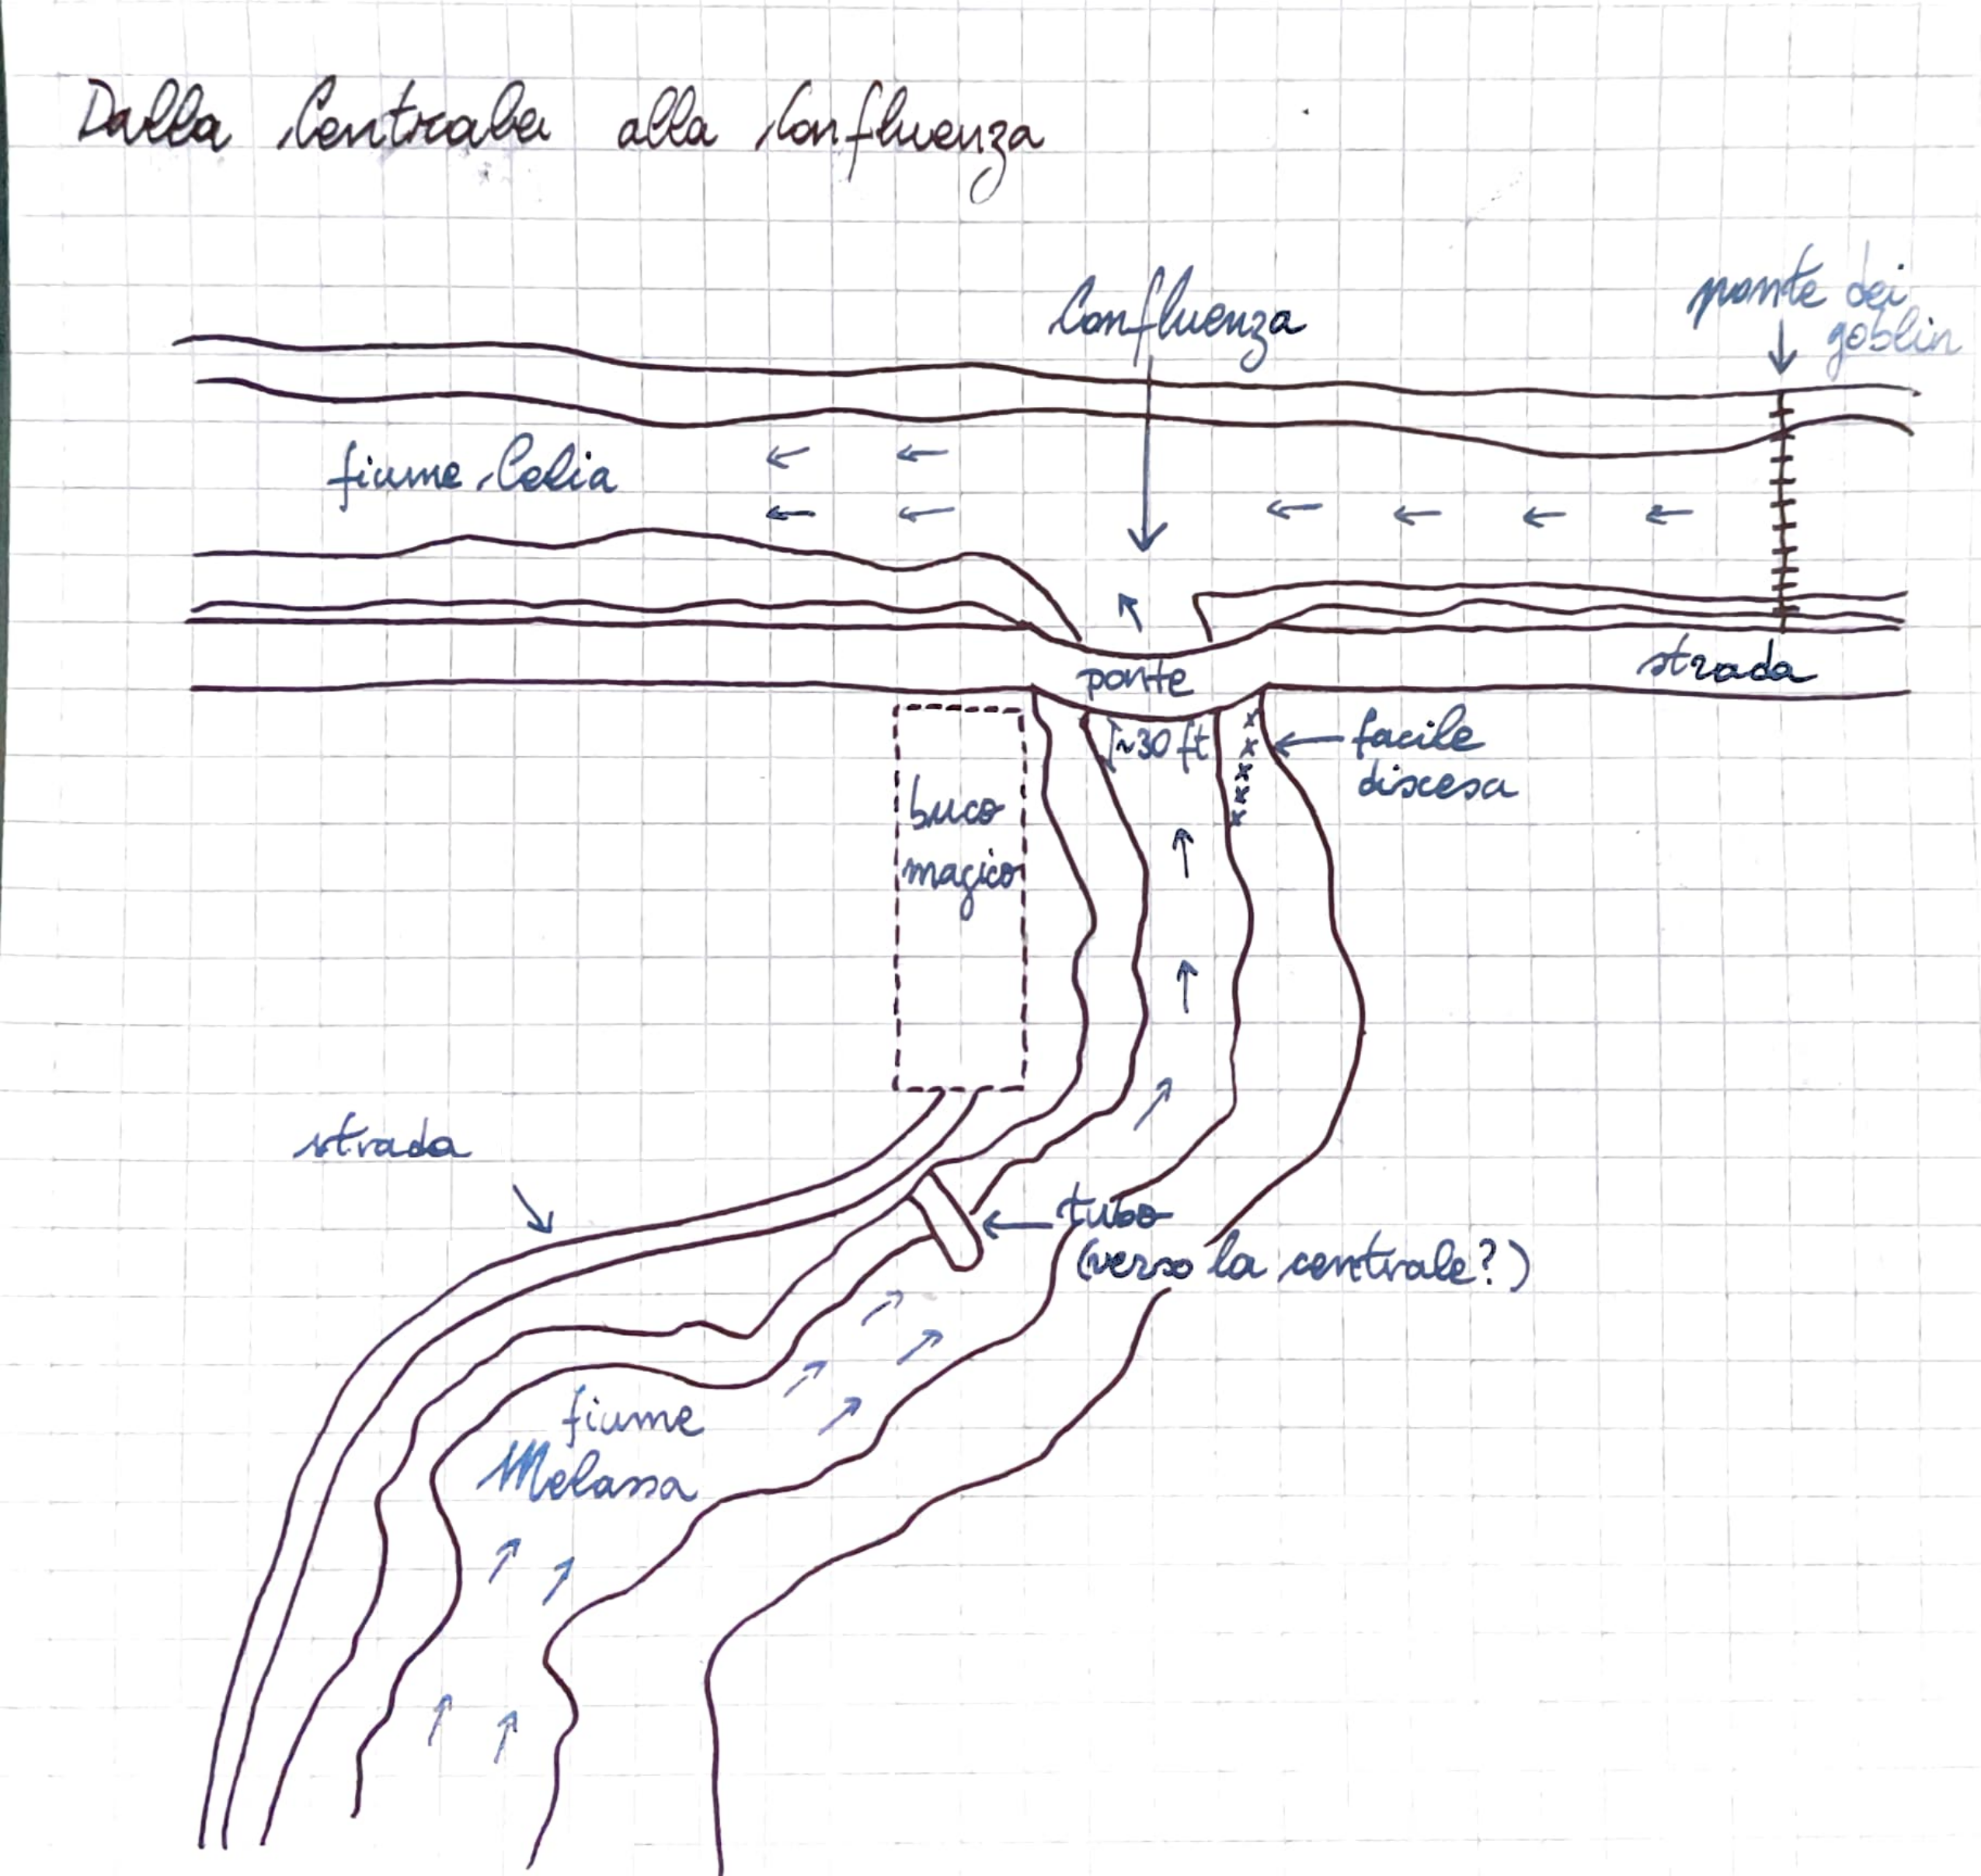 Dalla Centrale alla Confluenza
Confluenza
ponte dei
goblin
fiume Celia
strada
ponte
~30 ft
facile
discesa
buco
magico
strada
tubo
(verso la centrale?)
fiume
Melassa